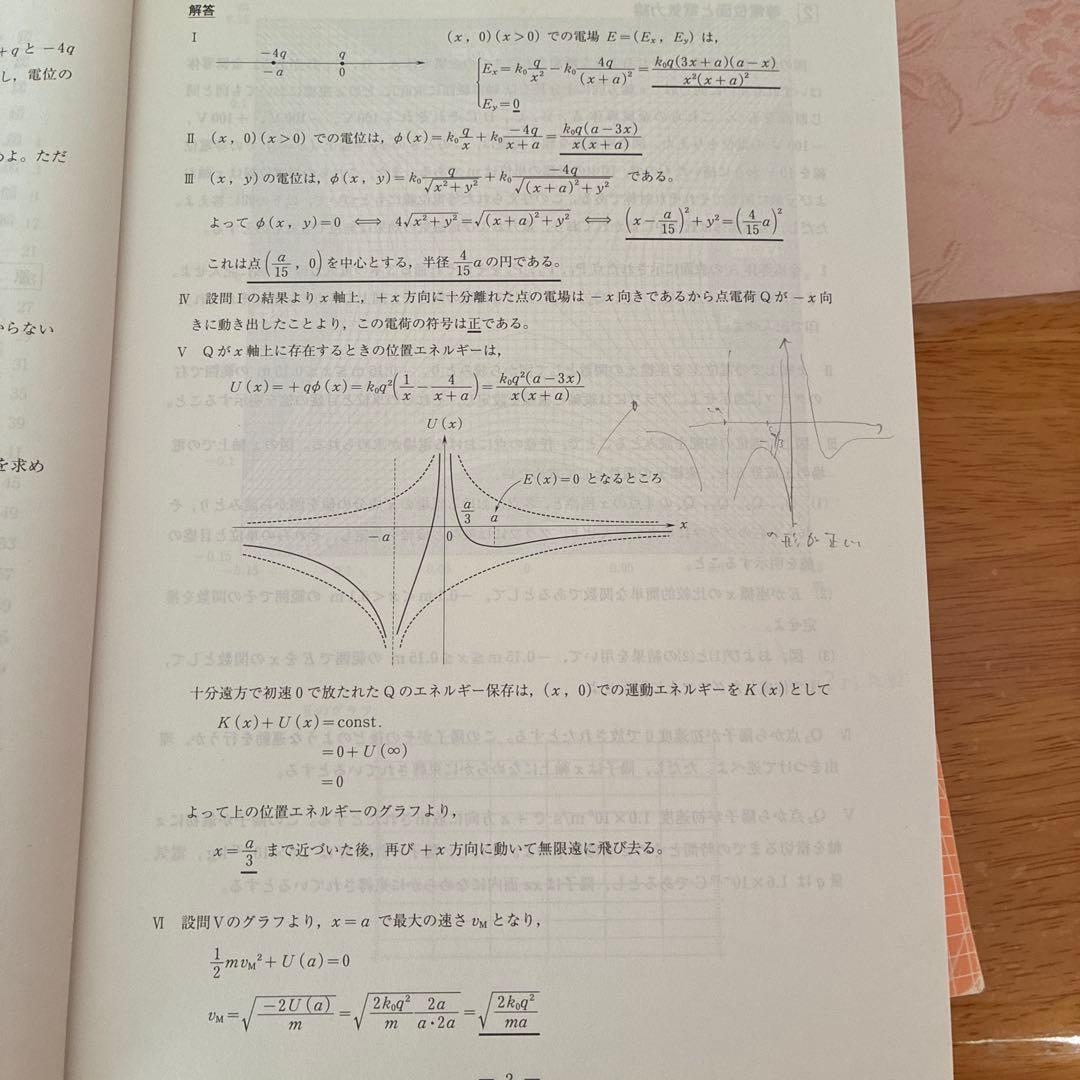 +q と −4q
し，電位の
めよ。ただ
からない
を求め
解答
Ⅰ
−4q q
−a 0
(x, 0)(x>0) での電場 E=(Eₓ, E_y) は，
Eₓ=k₀ q/x² − k₀ 4q/(x+a)² = k₀q(3x+a)(a−x)/x²(x+a)²
E_y=0
Ⅱ (x, 0)(x>0) での電位は，φ(x)=k₀ q/x + k₀ −4q/(x+a) = k₀q(a−3x)/x(x+a)
Ⅲ (x, y)の電位は，φ(x, y)=k₀ q/√(x²+y²) + k₀ −4q/√((x+a)²+y²) である。
よって φ(x, y)=0 ⟺ 4√(x²+y²)=√((x+a)²+y²) ⟺ (x−a/15)²+y²=(4/15 a)²
これは点(a/15, 0)を中心とする，半径 4/15 a の円である。
Ⅳ 設問Ⅰの結果より x 軸上，+x 方向に十分離れた点の電場は −x 向きであるから点電荷 Q が −x 向
きに動き出したことより，この電荷の符号は正である。
Ⅴ Q が x 軸上に存在するときの位置エネルギーは，
U(x)=+qφ(x)=k₀q²(1/x − 4/(x+a))=k₀q²(a−3x)/x(x+a)
U(x)
E(x)=0 となるところ
a/3 a
−a 0 x
の形が正しい
十分遠方で初速 0 で放たれた Q のエネルギー保存は，(x, 0)での運動エネルギーを K(x)として
K(x)+U(x)=const.
=0+U(∞)
=0
よって上の位置エネルギーのグラフより，
x=a/3 まで近づいた後，再び +x 方向に動いて無限遠に飛び去る。
Ⅵ 設問Ⅴのグラフより，x=a で最大の速さ v_M となり，
1/2 mv_M²+U(a)=0
v_M=√(−2U(a)/m)=√(2k₀q²/m 2a/a·2a)=√(2k₀q²/ma)
— 2 —